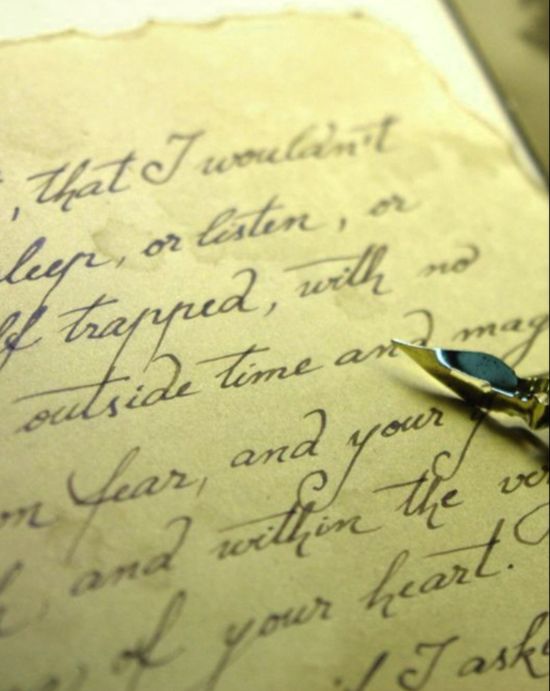 , that I wouldn't
, or listen, or
trapped, with no
outside time and
fear, and your
, and within the
of your heart.
I